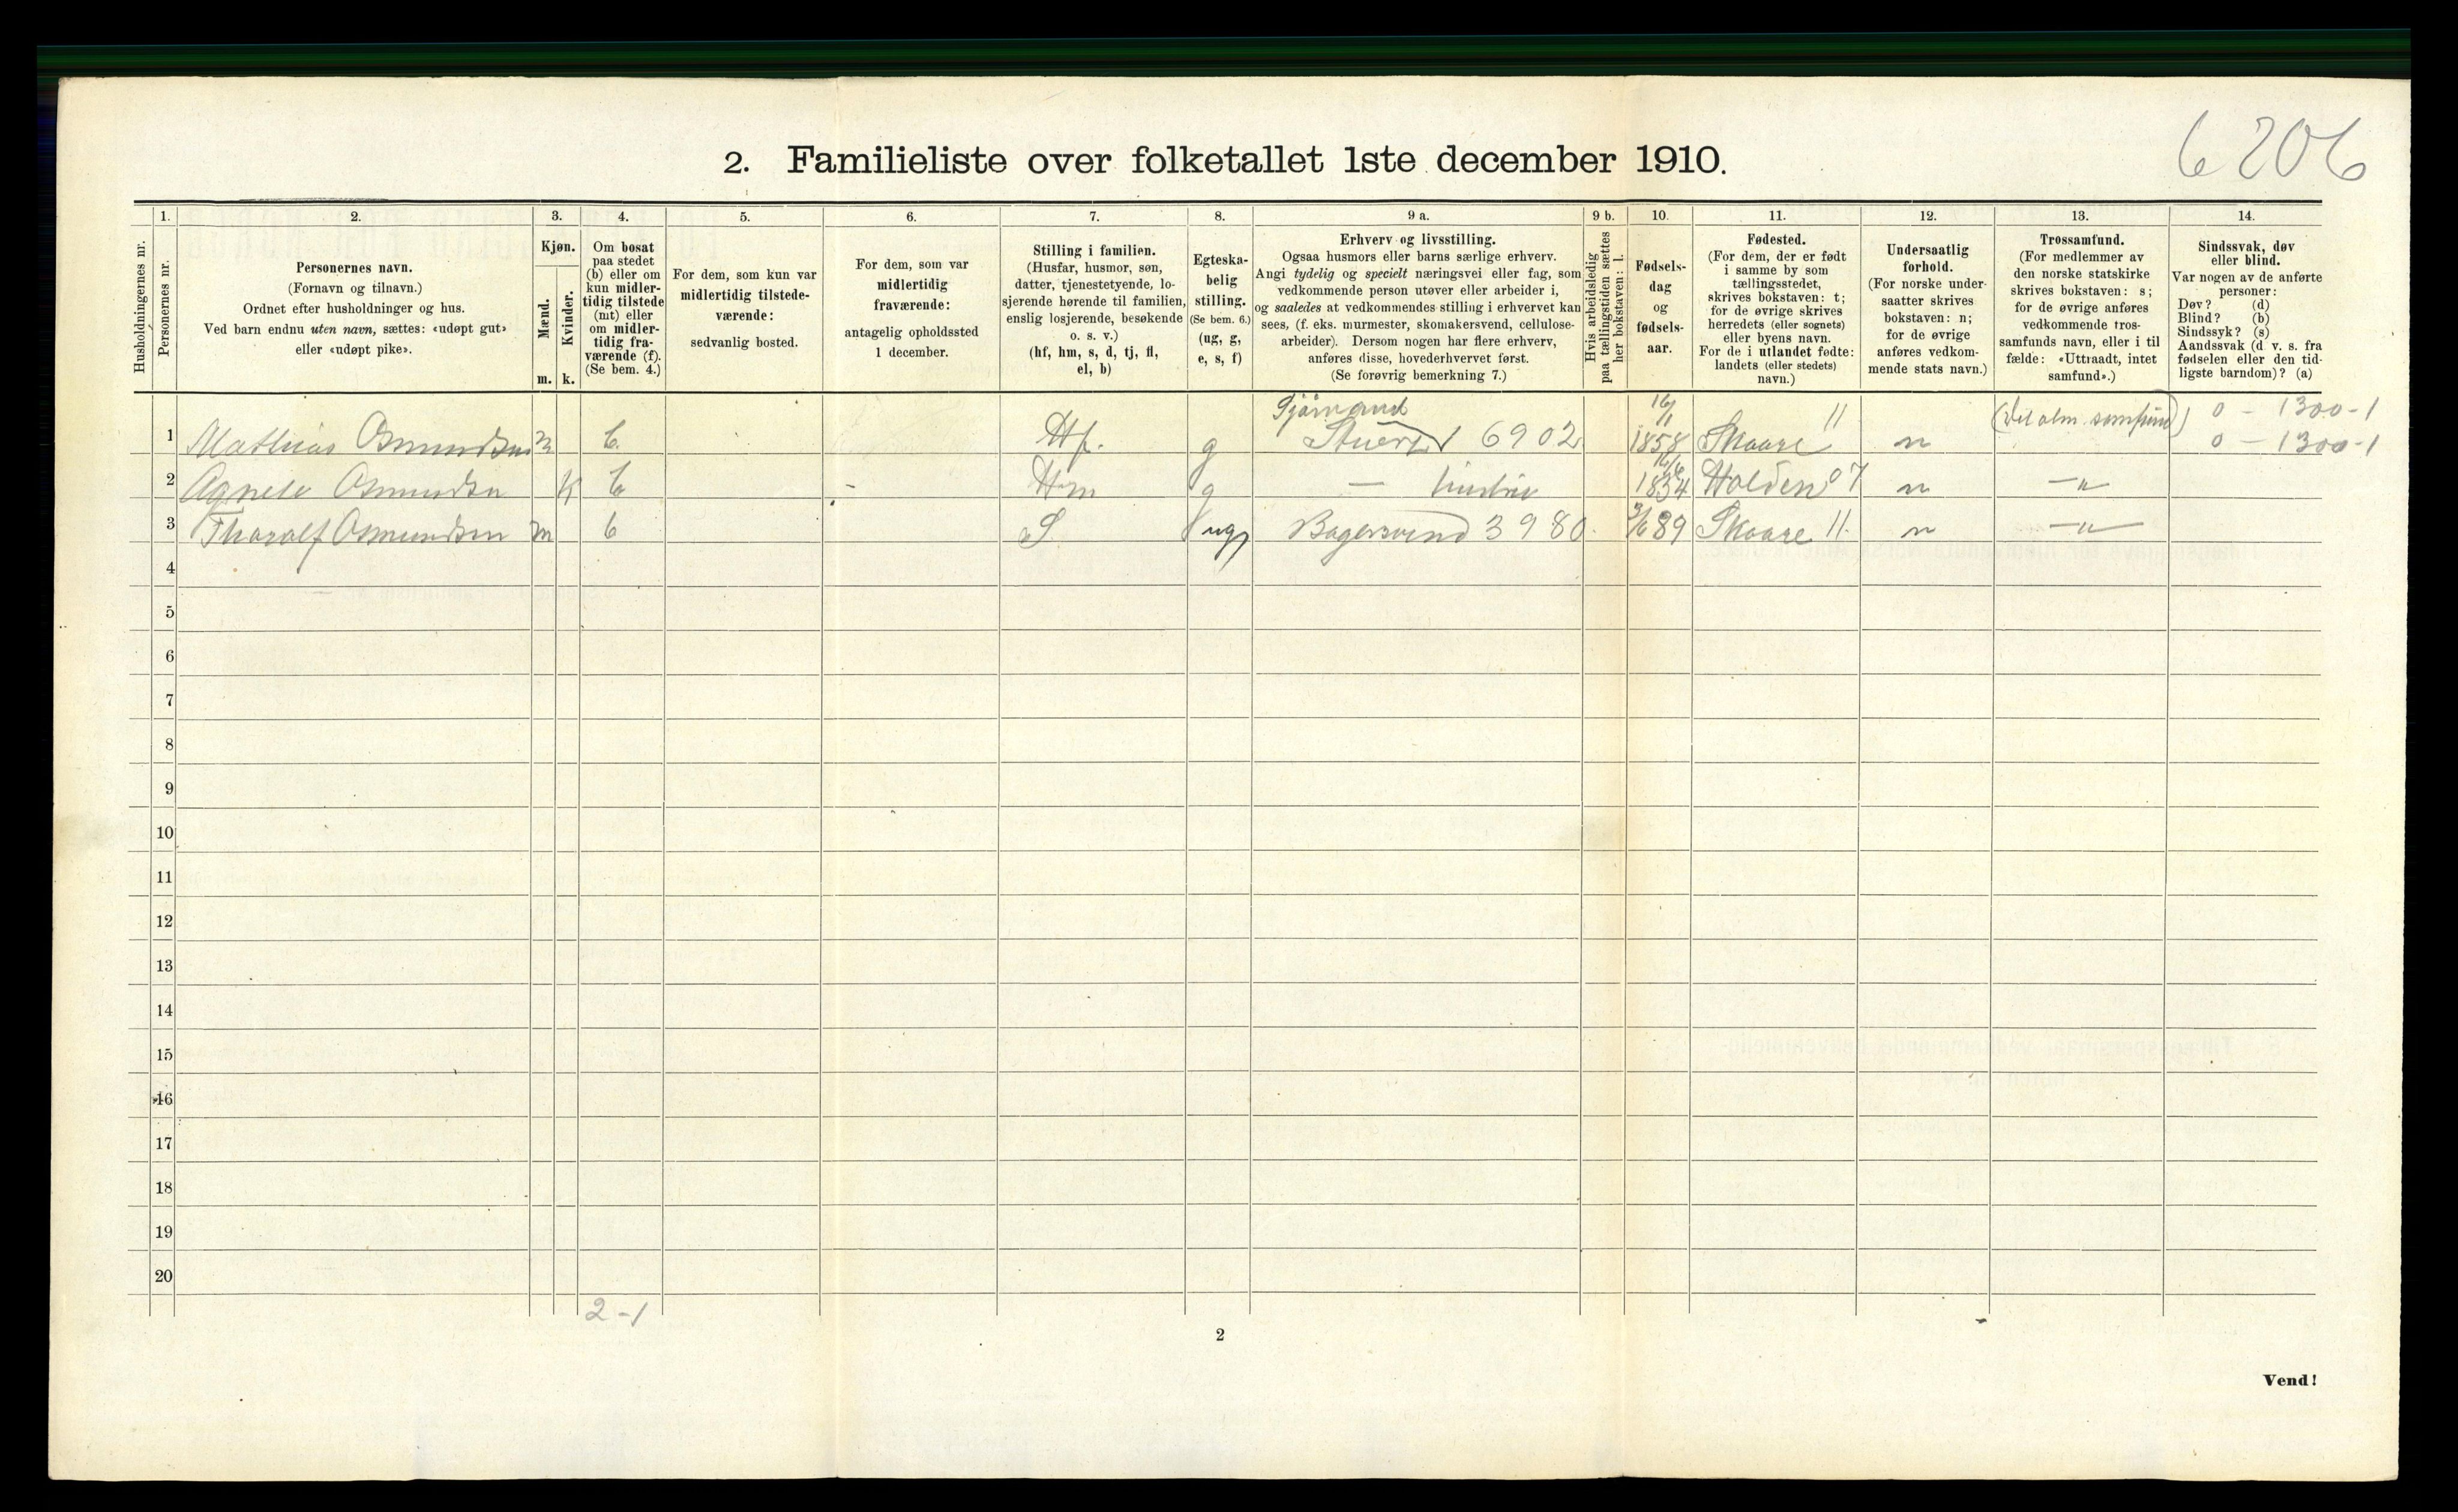 6206
2. Familieliste over folketallet 1ste december 1910.
Husholdningernes nr.
1.
Personernes nr.
2.
Personernes navn.
(Fornavn og tilnavn.)
Ordnet efter husholdninger og hus.
Ved barn endnu uten navn, sættes: «udøpt gut»
eller «udøpt pike».
3.
Kjøn.
Mænd.
Kvinder.
m. k.
4.
Om bosat
paa stedet
(b) eller om
kun midler-
tidig tilstede
(mt) eller
om midler-
tidig fra-
værende (f).
(Se bem. 4.)
5.
For dem, som kun var
midlertidig tilstede-
værende:
sedvanlig bosted.
6.
For dem, som var
midlertidig
fraværende:
antagelig opholdssted
1 december.
7.
Stilling i familien.
(Husfar, husmor, søn,
datter, tjenestetyende, lo-
sjerende hørende til familien,
enslig losjerende, besøkende
o. s. v.)
(hf, hm, s, d, tj, fl,
el, b)
8.
Egteska-
belig
stilling.
(Se bem. 6.)
(ug, g,
e, s, f)
9 a.
Erhverv og livsstilling.
Ogsaa husmors eller barns særlige erhverv.
Angi tydelig og specielt næringsvei eller fag, som
vedkommende person utøver eller arbeider i,
og saaledes at vedkommendes stilling i erhvervet kan
sees, (f. eks. murmester, skomakersvend, cellulose-
arbeider). Dersom nogen har flere erhverv,
anføres disse, hovederhvervet først.
(Se forøvrig bemerkning 7.)
9 b.
Hvis arbeidsledig
paa tællingstiden sættes
her bokstaven: l.
10.
Fødsels-
dag
og
fødsels-
aar.
11.
Fødested.
(For dem, der er født
i samme by som
tællingsstedet,
skrives bokstaven: t;
for de øvrige skrives
herredets (eller sognets)
eller byens navn.
For de i utlandet fødte:
landets (eller stedets)
navn.)
12.
Undersaatlig
forhold.
(For norske under-
saatter skrives
bokstaven: n;
for de øvrige
anføres vedkom-
mende stats navn.)
13.
Trossamfund.
(For medlemmer av
den norske statskirke
skrives bokstaven: s;
for de øvrige anføres
vedkommende tros-
samfunds navn, eller i til
fælde: «Uttraadt, intet
samfund».)
14.
Sindssvak, døv
eller blind.
Var nogen av de anførte
personer:
Døv? (d)
Blind? (b)
Sindssyk? (s)
Aandssvak (d. v. s. fra
fødselen eller den tid-
ligste barndom)? (a)
1 Mathias Osmundsen m b. Hf. g 6902 1858 Skaare 11 n 0 - 1300-1
0 - 1300-1
2 Osmundsen k b Hm g — hustru Holden 07 n —"—
3 Tharalf Osmundsen m b S ug Bagersvend 3980 89 Skaare 11. n —"—
4
5
6
7
8
9
10
11
12
13
14
15
16
17
18
19
20
2-1
2
Vend!